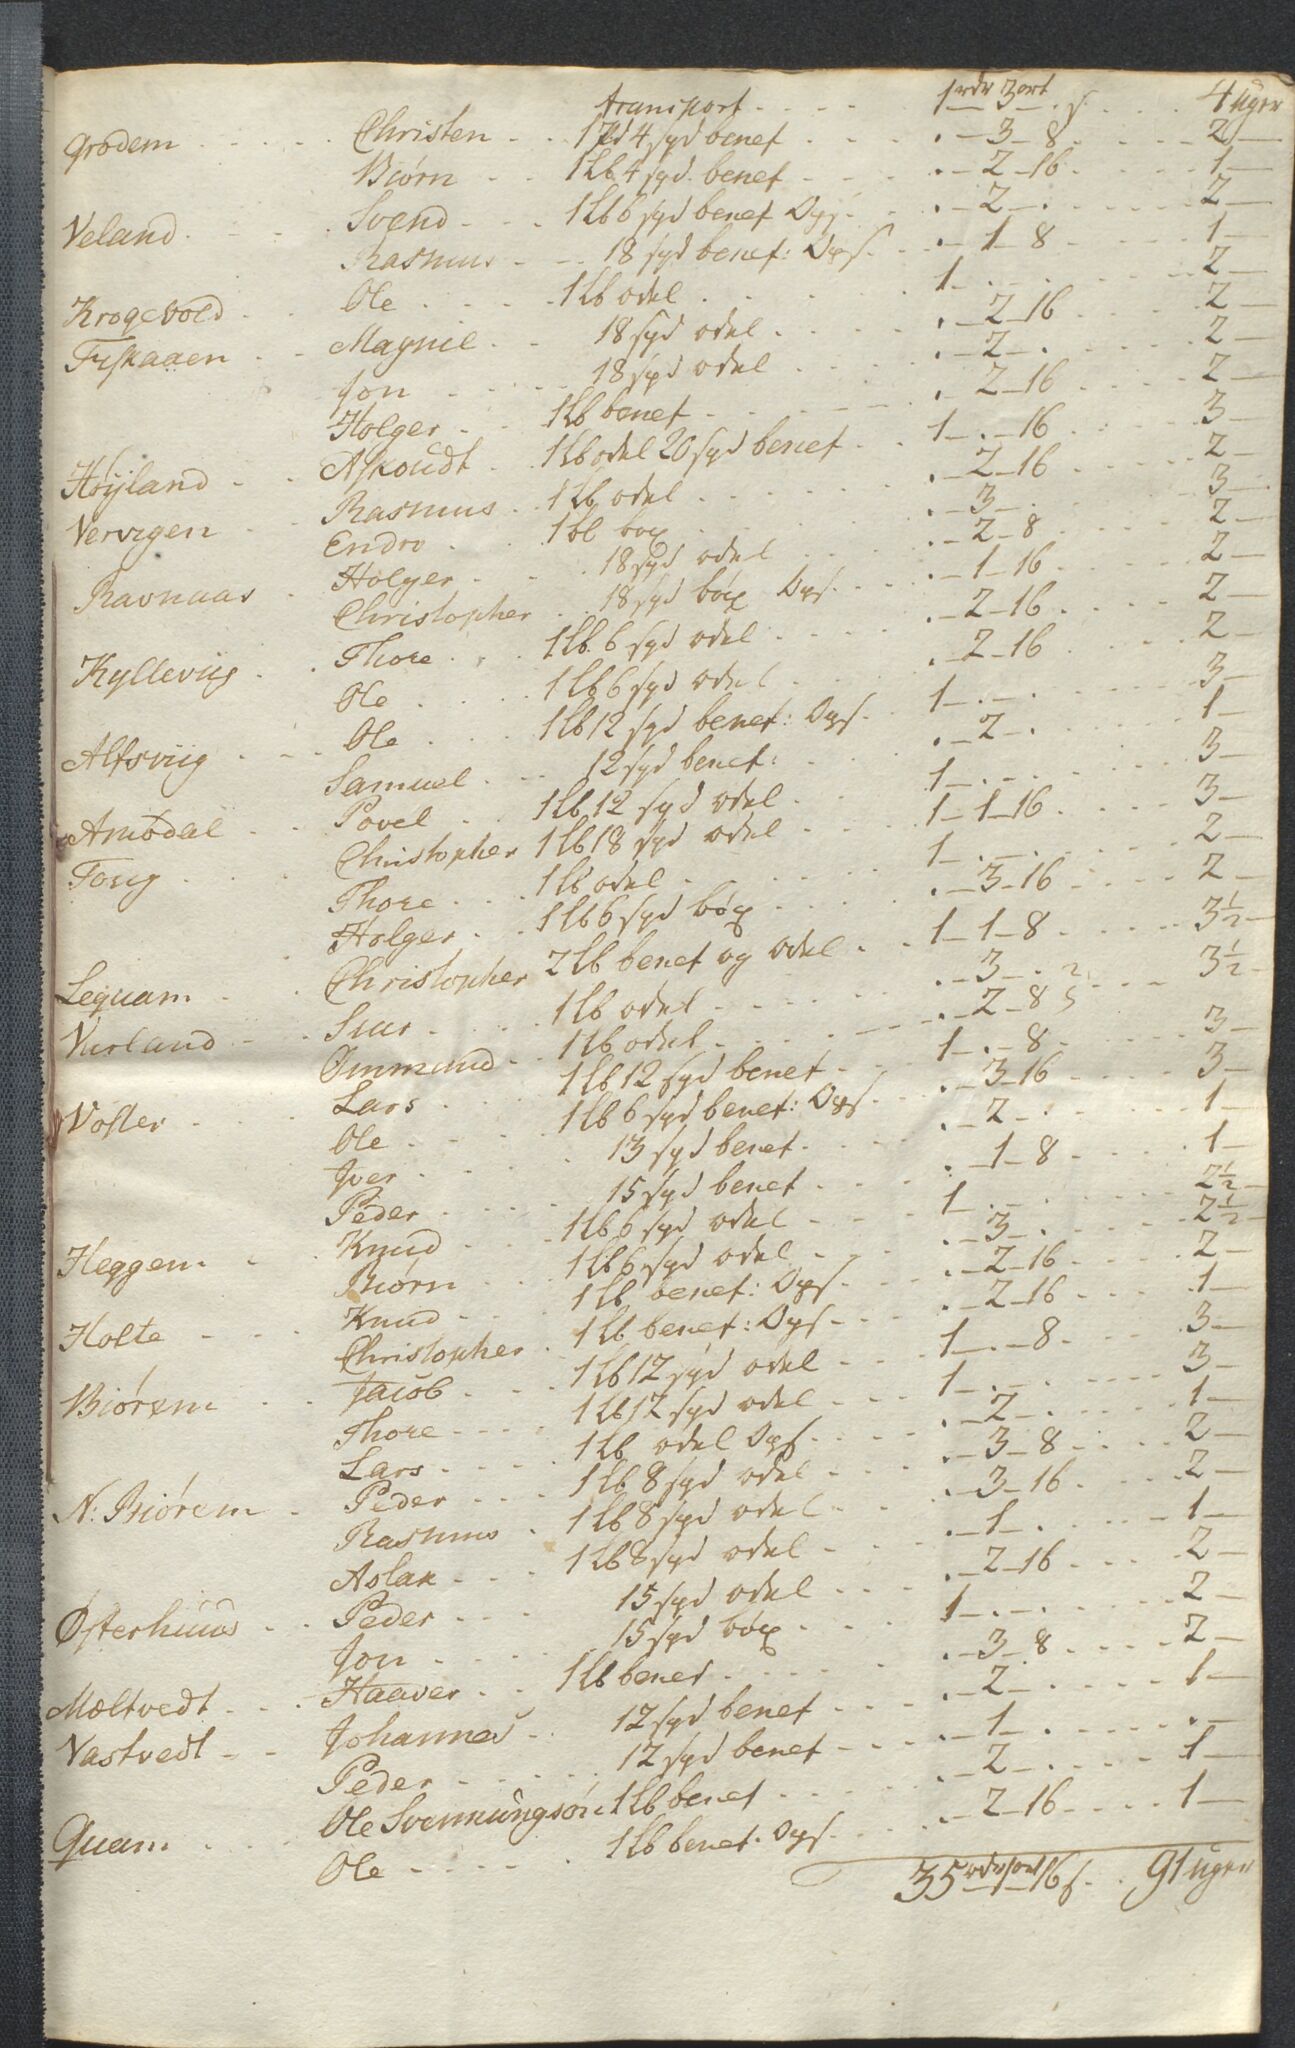 transport - - - - 1 rdr 3 ort - s. 4 uger
Grødem - - - - - Christen - - 1 Pd 4 spd benef - - - . - 3 - 8 - - - - 2 -
Biørn - - 1 Lb 4 spd. benef - - - . - 2 - 16 - - - - 1 -
Veland - - - - Svend - - - 1 Lb 6 spd benef Ops. - . - 2 - . - - - - 2 -
Rasmus - - - 18 spd benef: Ops. - - . - 1 - 8 - - - - 1 -
Krogevold - - Ole - - - - 1 Lb odel - - - - 1 - . - . - - - - 2 -
Fiskaaen - - Magnil - - 18 spd odel - - - - . - 2 - 16 - - - - 2 -
Jon - - - - 18 spd odel - - - . - 2 - . - - - - 2 -
Holger - - 1 Lb benef - - - - . 2 - 16 - - - - 2 -
Høyland - - Askoudt - 1 Lb odel 20 spd benef - - 1 - . - 16 - - - - 3 -
Vervigen - - Rasmus - - 1 Lb odel - - - - . - 2 - 16 - - - - 2 -
Endre - - - 1 bl box - - - - . - 3 - . - - - - 3 -
Ravnaas - - Holger - - - 18 spd odel - - - . - 2 - 8 - - - - 2 -
Christopher - - 18 spd bóx Ops. - - . - 1 - 16 - - - - 2 -
Kylleviig - - Thore - - - 1 Lb. 6 spd odel - - - - . - 2 - 16 - - - - 2 -
Ole - - - 1 Lb 6 spd odel - - - . - 2 - 16 - - - - 2 -
Alfsviig - - - Ole - - - 1 Lb 12 spd benef: Ops. - - 1 - . - . - - - - 3 -
Samuel - - - 12 spd benef: - - . - 2 - . - - - - 1 -
Amødal - - Povel - - 1 Lb 12 spd odel - - 1 - . - . - - - - 3 -
Tong - - - Christopher 1 Lb 18 spd odel - - - 1 - 1 - 16 - - - - 3 -
Thore - - - 1 Lb odel - - - - 1 - . - . - - - - 2 -
Holger - - 1 Lb 6 spd bóx - - - - . - 3 - 16 - - - - 2 -
Lequam - - Christopher 2 Lb benef og odel - - 1 - 1 - 8 - - - - 3½ -
Vurland - - - Siur - - - 1 Lb odel - - - - . - 3 - . - - - - 3½ -
Ommund - - 1 Lb odel - - - - . - 2 - 8
Voster - - Lars - - - 1 Lb 12 spd benef - - - 1 - . - 8 - - - - 3 -
Ole - - - 1 Lb 6 spd benef: Ops - - . - 3 - 16 - - - - 3 -
Iver - - - - 13 spd benef - - - . - 2 - . - - - - 1 -
Peder - - - - 15 spd benef - - - . - 1 - 8 - - - - 1 -
Heggem - - Knud - - - 1 Lb 6 spd odel - - - 1 - . - . - - - - 2½ -
Biørn - - - 1 Lb 6 spd odel - - - . - 3 - . - - - - 2½ -
Holte - - - Knud - - - 1 Lb benef: Ops. - - - . - 2 - 16 - - - - 2 -
Christopher - 1 Lb benef: Ops - - - . - 2 - 16 - - - - 1 -
Biørem - - Jacob - - - 1 Lb 12 spd odel - - - 1 - . - 8 - - - - 3 -
Thore - - - 1 Lb 12 spd odel - - - 1 - . - . - - - - 3 -
Lars - - - - 1 Lb odel Ops - - - . - 2 - . - - - - 1 -
N: Biørem - Peder - - - 1 Lb 8 spd odel - - - . - 3 - 8 - - - - 2 -
Rasmus - 1 Lb 8 spd odel - - - . - 3 - 16 - - - - 2 -
Aslak - - - 1 Lb 8 spd odel - - - . - 1 - . - - - - 1 -
Østerhuus - - Peder - - - 15 spd odel - - - . - 2 - 16 - - - - 2 -
Jon - - - - 15 spd bóx - - - 1 - . - . - - - - 2 -
Mæltvedt - - - Haaver - - 1 Lb benef - - - - . - 3 - 8 - - - - 2 -
Vastvedt - - Johannes - - 12 spd benef - - - . - 2 - . - - - - 1 -
Peder - - - - - 12 spd benef - - - . - 1 - . - - - - . -
Quam - - - Ole Svennungsøn 1 Lb benef - - - . - 2 - . - - - - 1 -
Ole - - - - - 1 Lb benef. Ops. - - - . - 2 - 16 - - - - 1 -
35 rdr 1 ort 16 s. - 91 uger